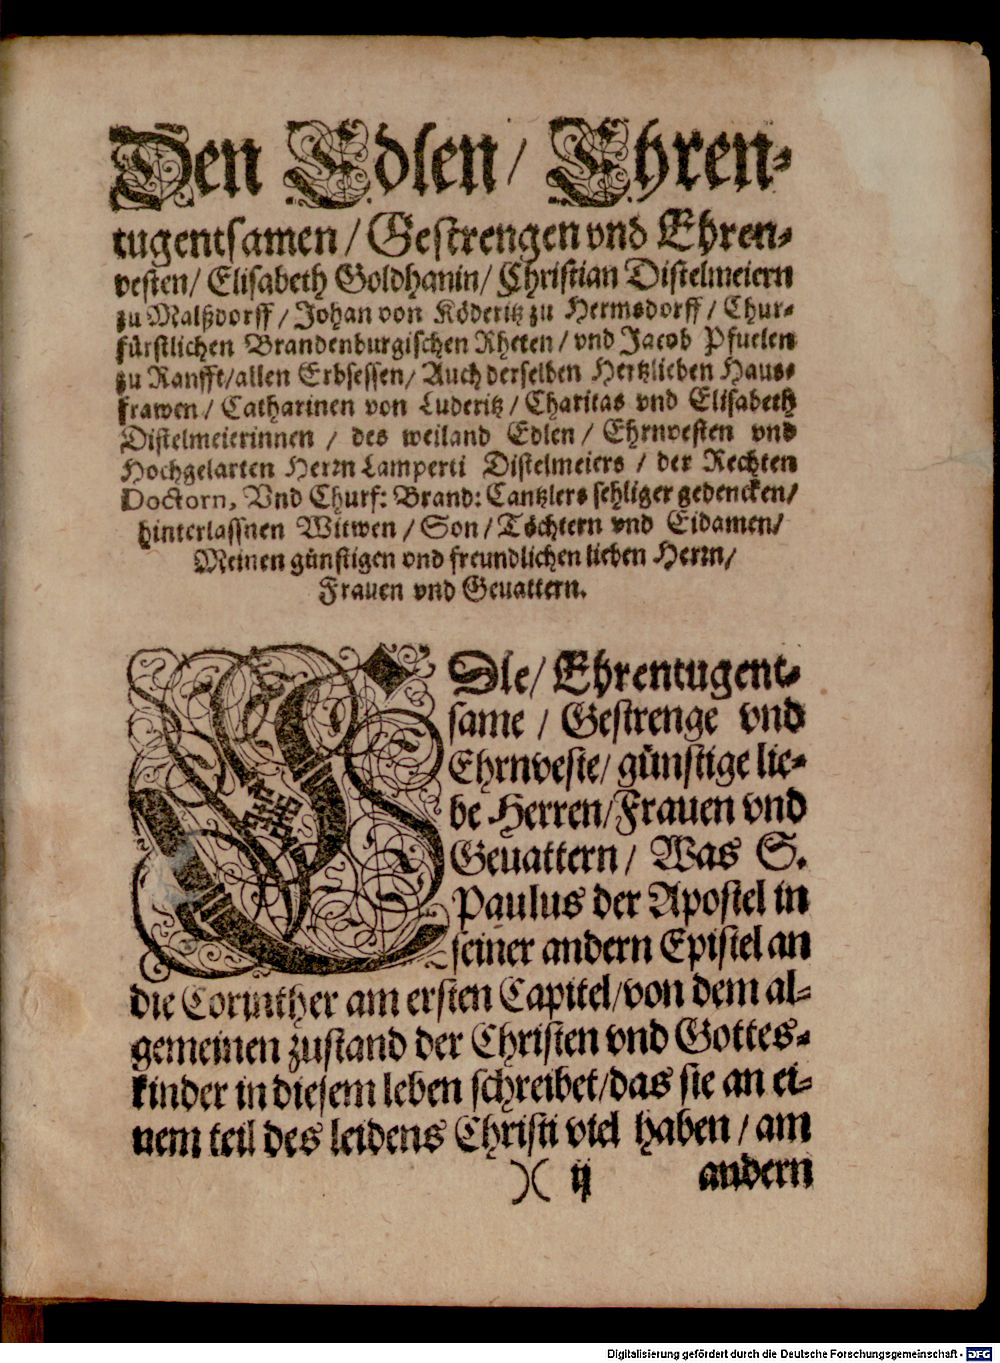 Den Edlen/ Ehren-
tugentsamen/ Gestrengen vnd Ehren-
vesten/ Elisabeth Goldhanin/ Christian Distelmeiern
zu Malßdorff/ Johan von Köderitz zu Hermsdorff/ Chur-
fürstlichen Brandenburgischen Rheten/ vnd Jacob Pfuelen
zu Ranfft/allen Erbsessen/ Auch derselben Hertzlieben Haus-
frawen/ Catharinen von Luderitz/ Charitas vnd Elisabeth
Distelmeierinnen / des weiland Edlen/ Ehrnvesten vnd
Hochgelarten Herrn Lamperti Distelmeiers / der Rechten
Doctorn, Vnd Churf: Brand: Cantzlers sehliger gedencken/
hinterlassnen Witwen/ Son/ Töchtern vnd Eidamen/
Meinen günstigen vnd freundlichen lieben Herrn/
Frauen vnd Geuattern.
EDle/ Ehrentugent-
same / Gestrenge vnd
Ehrnveste/ günstige lie-
be Herren/Frauen vnd
Geuattern/ Was S.
Paulus der Apostel in
seiner andern Epistel an
die Corinther am ersten Capitel/von dem al-
gemeinen zustand der Christen vnd Gottes-
kinder in diesem leben schreibet/das sie an ei-
nem teil des leidens Christi viel haben/ am
)( ij andern
Digitalisierung gefördert durch die Deutsche Forschungsgemeinschaft - DFG